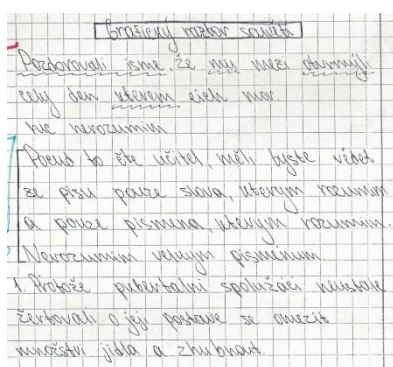 Grafický rozbor souvětí
Pozdorovali jsme, že mu mezi
cely den kterem eich nor.
nic nerozumim
Pocud to čte učitel, měli byste vědet
že pisu pouze slova, kterym rozumim
a pouze pismena, kterym rozumim.
Nerozumim velkym pismenum.
1 Protože pubertalni spolužáci neustale
žertovali o její postave se omezit
množstvi jidla a zhubnout.